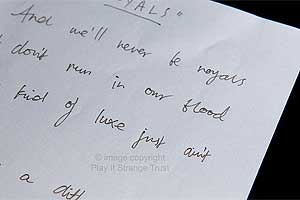 ROYALS"
And we'll never be royals
don't run in our blood
kind of luxe just ain't
© image copyright
Play It Strange Trust
a diff